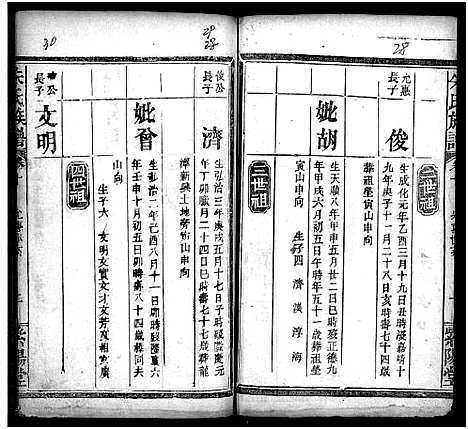 28
朱氏族譜
紫陽堂
三世祖
允惠長子
俊
生成化元年乙酉三月十九日丑時歿嘉靖
九年庚子十一月二十八日亥時壽七十四歲
葬祖塋寅山申向
妣胡
生天順八年甲申五月廿二日巳時歿正德九
年甲戌六月初五日午時年五十一歲葬祖塋
寅山申向
生子四 濟 漢 淳 海
29
28
俊公長子
濟
生弘治三年庚戌五月十七日子時歿隆慶元
年丁卯臘月二十四日巳時壽七十七歲葬龍
潭新興土地旁寅山申向
妣曾
生弘治二年己酉八月十一日卯時歿隆慶六
年壬申十月初五日卯時壽八十四歲葬同夫
山向
生子六 文明 文實 文才 文芳 文相 文廣
30
四世祖
濟公長子
文明
朱氏族譜
紫陽堂